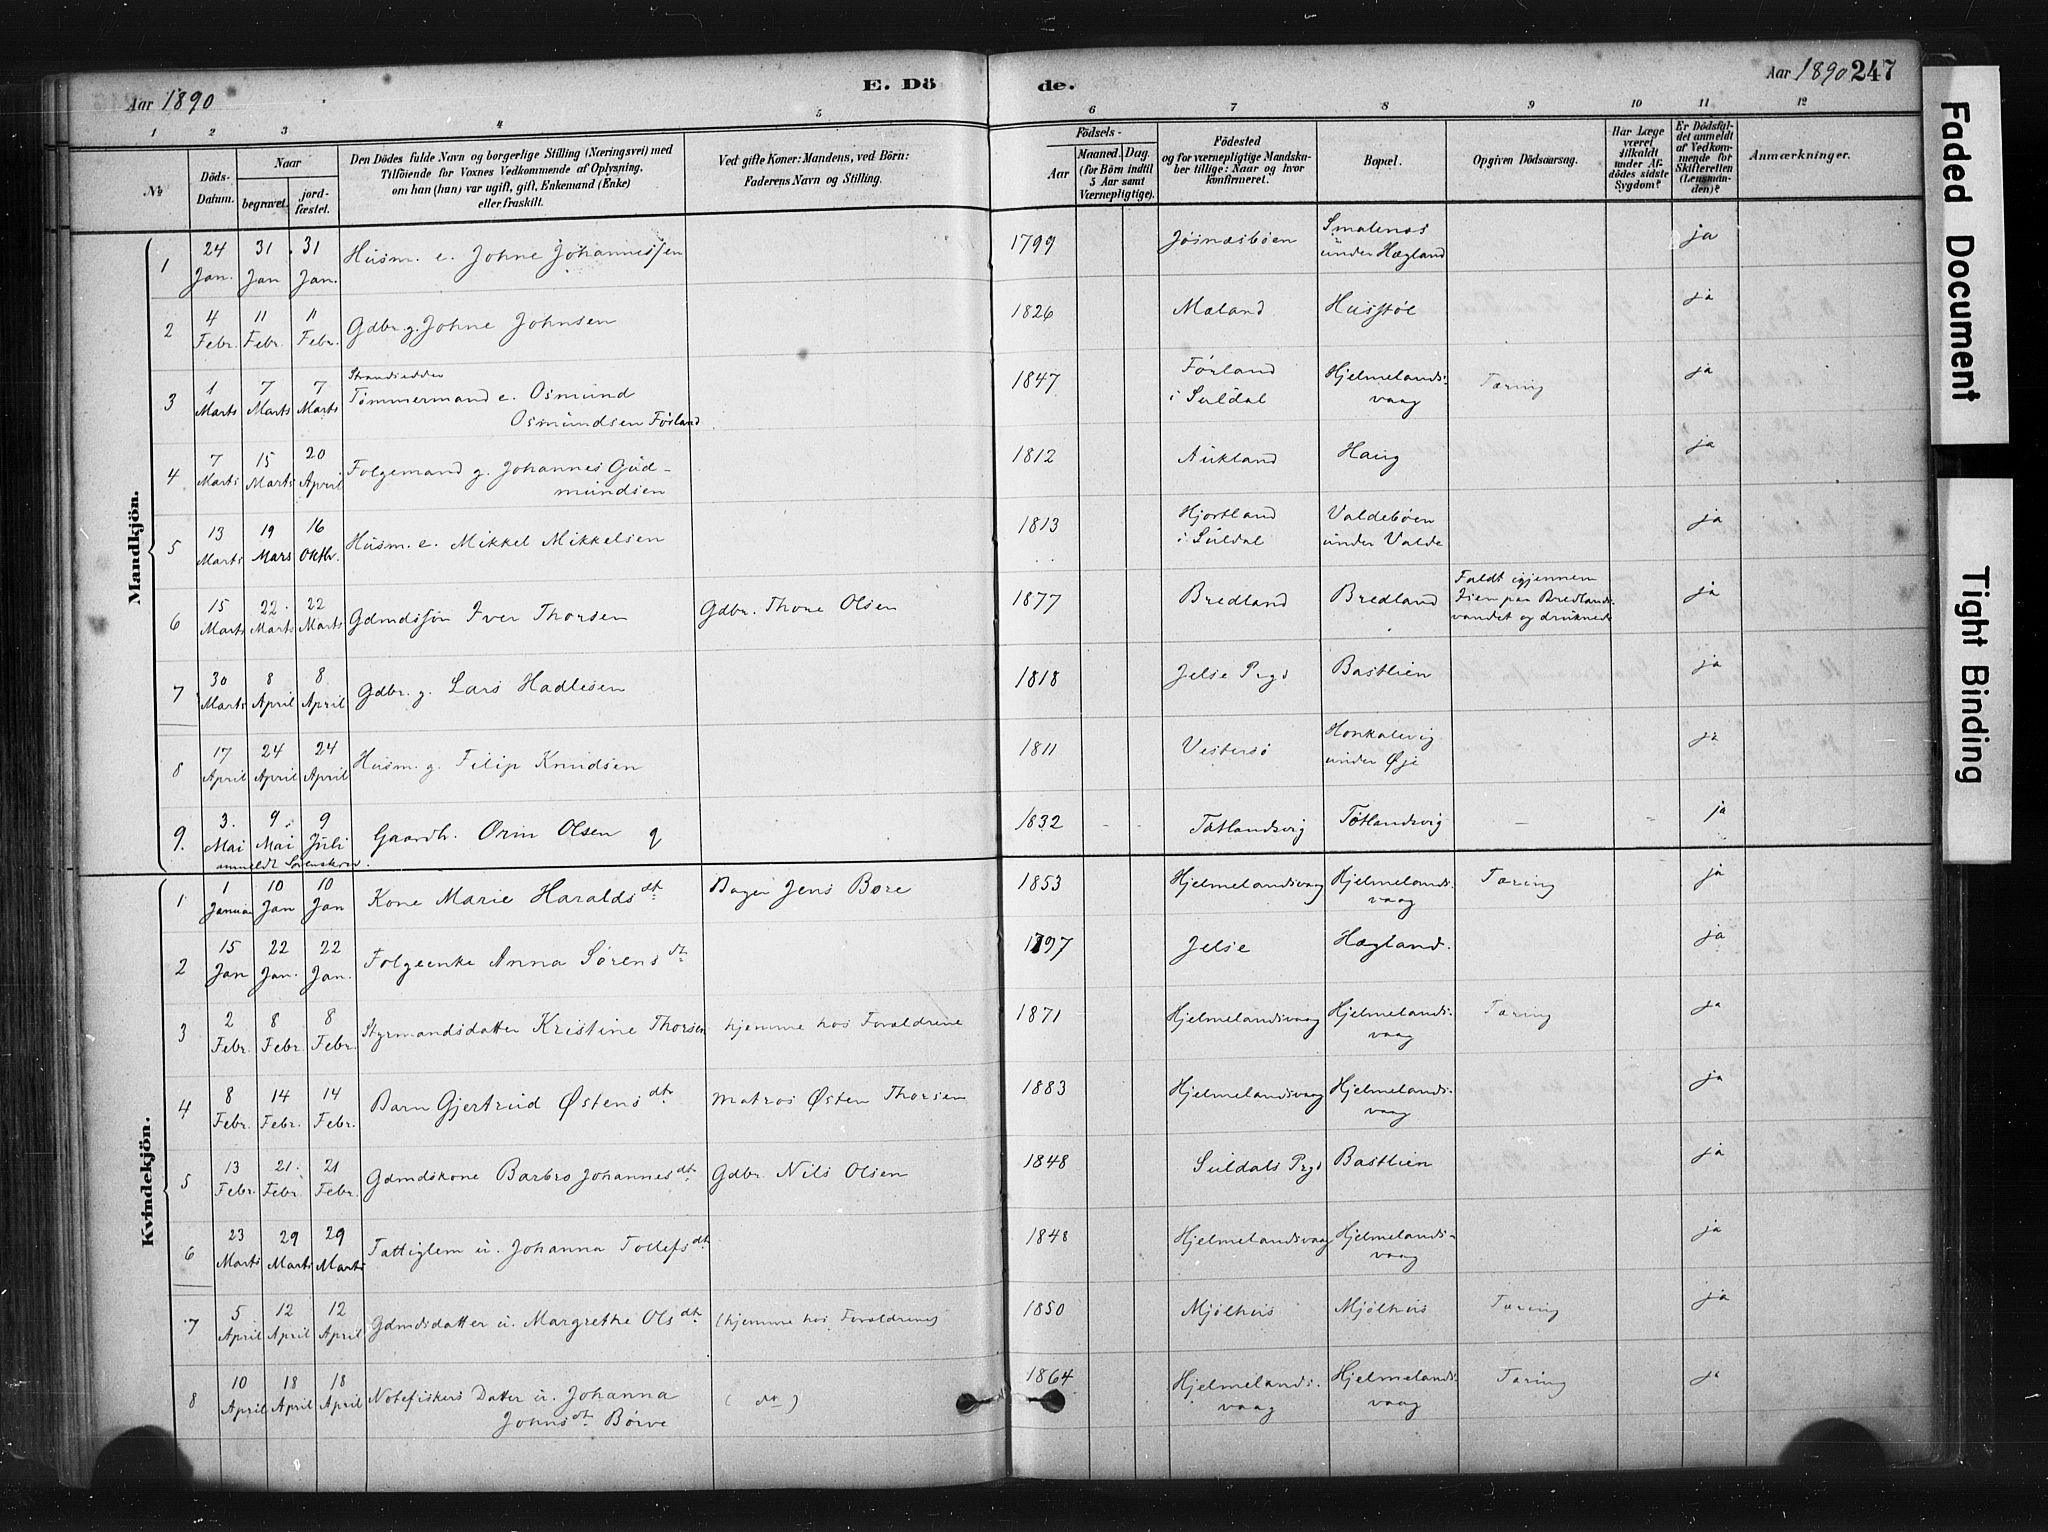 Aar 1890
E. Dö
de.
Aar 1890 247
1 2 3 4 5 6 7 8 9 10 11 12
No
Döds-Datum.
Naar
begravet.
jord-fæstet.
Den Dödes fulde Navn og borgerlige Stilling (Næringsvei) med
Tilföiende for Voxnes Vedkommende af Oplysning,
om han (hun) var ugift, gift, Enkemand (Enke)
eller fraskilt.
Ved gifte Koner: Mandens, ved Börn:
Faderens Navn og Stilling.
Födsels-
Aar
Maaned. Dag.
(for Börn indtil
5 Aar samt
Værnepligtige).
Födested
og for værnepligtige Mandska-
ber tillige: Naar og hvor
konfirmeret.
Bopæl.
Opgiven Dödsaarsag.
Har Læge
været
tilkaldt
under Af-
dödes sidste
Sygdom?
Er Dödsfal-
det anmeldt
af Vedkom-
mende for
Skifteretten
(Lensman-
den)?
Anmærkninger.
Mandkjön.
1 24 Jan. 31 Jan 31 Jan. Husm. e. Johne Johannessen 1799 Jøsnæsbøen Smalenæs under Hægland ja
2 4 Febr. 11 Febr. 11 Febr. Gdbr. g. Johne Johnsen 1826 Mæland Husstøl ja
3 1 Marts 7 Marts 7 Marts Strandsidder Tømmermand e. Osmund Osmundsen Førland 1847 Førland i Suldal Hjelmelands-vaag Tæring ja
4 7 Marts 15 Marts 20 April Folgemand g. Johannes Gud-mundsen 1812 Aukland Haug ja
5 13 Marts 19 Mars 16 Oktbr. Husm. e. Mikkel Mikkelsen 1813 Hjortland i Suldal Valdebøen under Valde ja
6 15 Marts 22 Marts 22 Marts Gdmdssøn Iver Thorsen Gdbr. Thore Olsen 1877 Bredland Bredland Faldt igjennem Isen paa Bredlands-vandet og druknede ja
7 30 Marts 8 April 8 April Gdbr. g. Lars Hadlesen 1818 Jelse Prgd Bastlien ja
8 17 April 24 April 24 April Husm. g. Filip Knudsen 1811 Vestersø Honkalevig under Øje ja
9. 3. Mai 9. Mai 9 Juli Gaardb. Orm Olsen g 1832 - - Tøtlandsvig Tøtlandsvig - - ja
anmeldt Sorenskrv.
Kvindekjön.
1 1 Januar 10 Jan 10 Jan Kone Marie Haraldsdt. Bager Jens Bore 1853 Hjelmelandsvaag Hjelmelands-vaag Tæring ja
2 15 Jan 22 Jan. 22 Jan. Folgeenke Anna Sørensdt. 1797 Jelse Hægland. ja
3 2 Febr. 8 Febr. 8 Febr. Styrmandsdatter Kristine Thorsen hjemme hos Forældrene 1871 Hjelmelandsvaag Hjelmelands-vaag Tæring ja
4 8 Febr. 14 Febr. 14 Febr. Barn Gjertrud Østensdt. Matros Østen Thorsen 1883 Hjelmelandsvaag Hjelmelands-vaag ja
5 13 Febr. 21. Febr. 21 Febr. Gdmdskone Barbro Johannesdt. Gdbr. Nils Olsen 1848 Suldals Prgd Bastlien ja
6 23 Marts 29 Marts 29 Marts Fattiglem u. Johanna Tollefsdt. 1848 Hjelmelandsvaag Hjelmelands-vaag ja
7 5 April 12 April 12 April Gdmdsdatter u. Margrethe Olsdt. (hjemme hos Forældrene) 1850 Mjølhus Mjølhus Tæring ja
8 10 April 18 April 18 April Notefiskers Datter u. Johanna Johnsdt. Børve (do) 1864 Hjelmelands-vaag Hjelmelands-vaag Tæring ja
Faded Document
Tight Binding